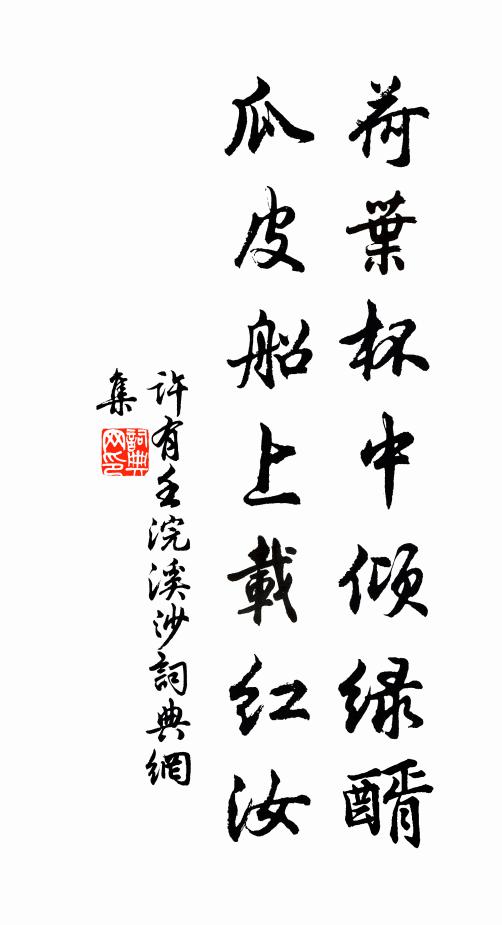 荷葉杯中傾緑醑
瓜皮船上載紅汝
許有壬浣溪沙詞典網
集
詞典网印